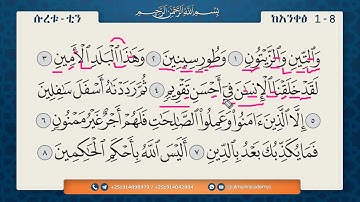 ሱረቱ - ቲን
بِسْمِ اللَّهِ الرَّحْمَٰنِ الرَّحِيمِ
ከአንቀፅ 1 - 8
وَالتِّينِ وَالزَّيْتُونِ ١ وَطُورِ سِينِينَ ٢ وَهَٰذَا الْبَلَدِ الْأَمِينِ ٣
لَقَدْ خَلَقْنَا الْإِنسَٰنَ فِي أَحْسَنِ تَقْوِيمٍ ٤ ثُمَّ رَدَدْنَٰهُ أَسْفَلَ سَٰفِلِينَ
٥ إِلَّا الَّذِينَ ءَامَنُوا وَعَمِلُوا الصَّٰلِحَٰتِ فَلَهُمْ أَجْرٌ غَيْرُ مَمْنُونٍ ٦
فَمَا يُكَذِّبُكَ بَعْدُ بِالدِّينِ ٧ أَلَيْسَ اللَّهُ بِأَحْكَمِ الْحَٰكِمِينَ ٨
+251914098979 / +251914042804